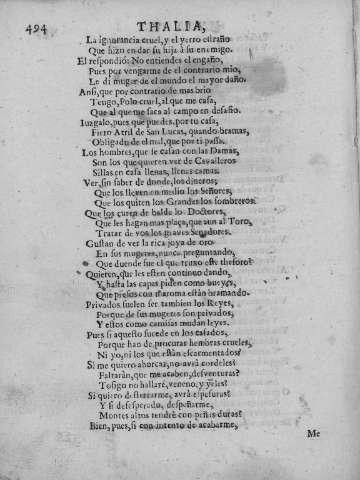 494
THALIA,
La ignorancia cruel, y el yerro estraño
Que hizo en dar su hija à su enemigo.
El respondiò: No entiendes el engaño,
Pues por vengarme de el contrario mio,
Le di muger de el mundo el mayor daño.
Ansi, que por contrario de mas brio
Tengo, Polo cruel, al que me casa,
Que al que me saca al campo en desafio.
Iuzgalo, pues que puedes, por tu casa,
Fiero Atril de San Lucas, quando bramas,
Obligado de el mal, que por ti passa.
Los hombres, que se casan con las Damas,
Son los que quieren ver de Cavalleros
Sillas en casa llenas, llenas camas.
Ver, sin saber de donde, los dineros;
Que los lleven en medio los Señores,
Que los quiten los Grandes los sombreros.
Que los curen de balde los Doctores,
Que les hagan mas plaça, que aun al Toro,
Tratar de vos los graves Senadores.
Gustan de ver la rica joya de oro
En sus mugeres, nunca preguntando,
Que duende fue el que truxo este thesoro?
Quieren, que les esten continuo dando,
Y hasta las capas piden como bueyes,
Que presos con maroma estàn bramando.
Privados suelen ser tambien los Reyes,
Porque de sus mugeres son privados,
Y estos como camisas mudan leyes.
Pues si aquesto sucede en los casados,
Porque han de procurar hembras crueles,
Ni yo, ni los que estàn escarmentados?
Si me quiero ahorcar, no avrà cordeles?
Faltaràn, que me acaben, desventuras?
Tosigo no hallarè, veneno, y yeles?
Si quiero desterrarme, avrà espesuras?
Y si desesperado, despeñarme,
Montes altos tendrè con peñas duras?
Bien, pues, si con intento de acabarme,
Me